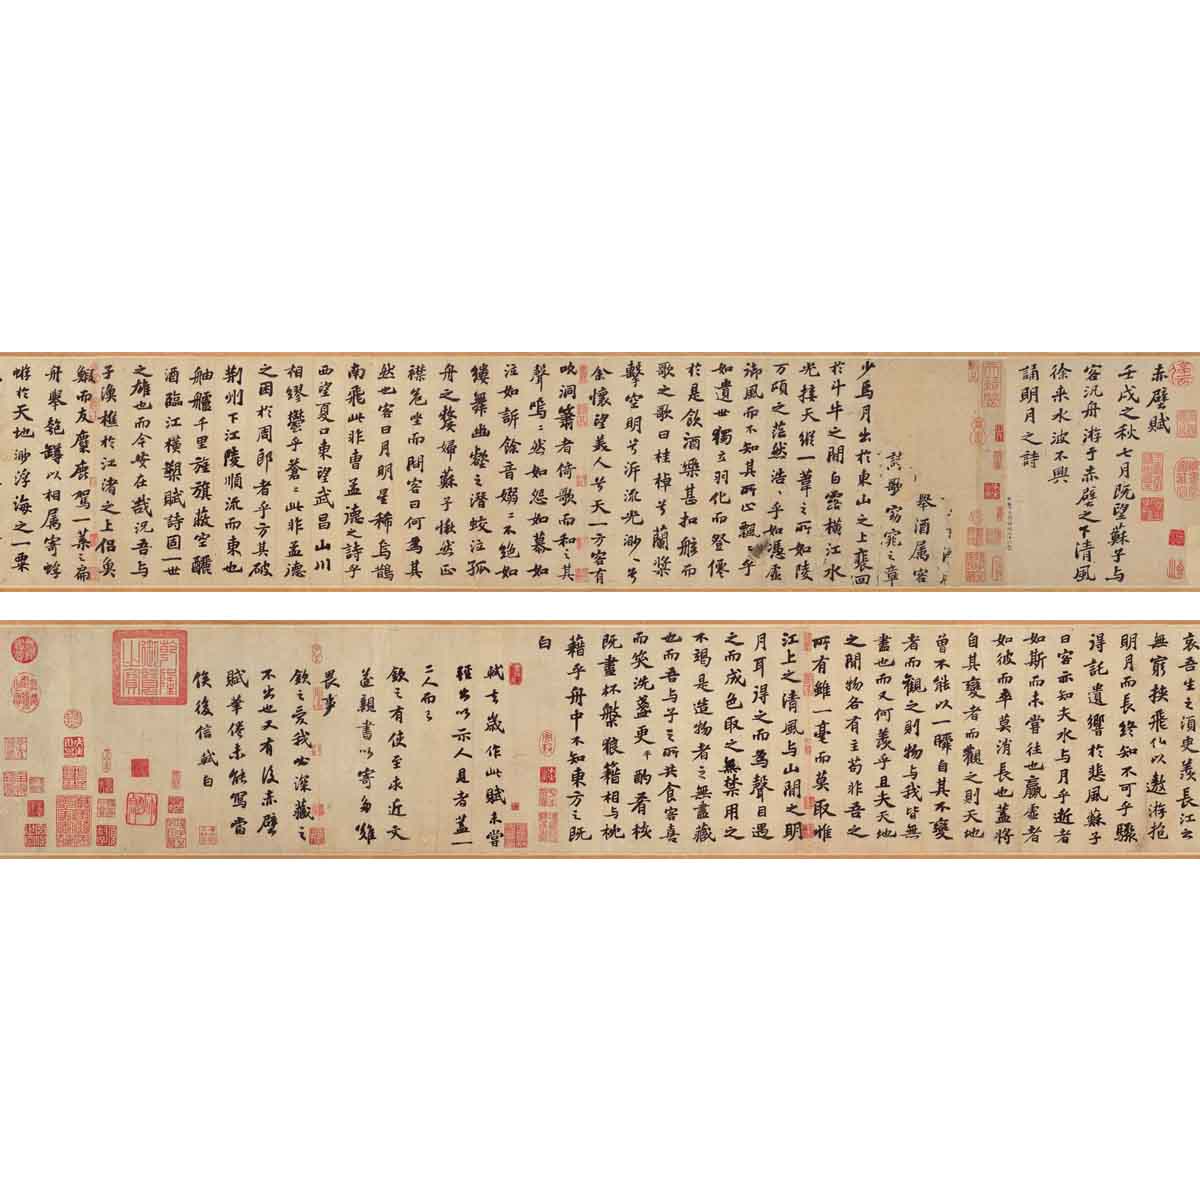 赤壁賦
壬戌之秋七月既望蘇子與
客汎舟游于赤壁之下清風
徐來水波不興
誦明月之詩
舉酒屬客
歌窈窕之章
少焉月出於東山之上裴回
於斗牛之間白露橫江水
光接天縱一葦之所如陵
万頃之茫然浩〻乎如憑虛
御風而不知其所止飄〻乎
如遺世獨立羽化而登僊
於是飲酒樂甚扣舷而
歌之歌曰桂棹兮蘭槳
擊空明兮泝流光渺〻兮
余懷望美人兮天一方客有
吹洞簫者倚歌而和之其
聲嗚〻然如怨如慕如
泣如訴餘音嫋〻不絕如
縷舞幽壑之潛蛟泣孤
舟之嫠婦蘇子愀然正
襟危坐而問客曰何為其
然也客曰月明星稀烏鵲
南飛此非曹孟德之詩乎
西望夏口東望武昌山川
相繆鬱乎蒼〻此非孟德
之困於周郎者乎方其破
荆州下江陵順流而東也
舳艫千里旌旗蔽空釃
酒臨江橫槊賦詩固一世
之雄也而今安在哉況吾與
子漁樵於江渚之上侶魚
鰕而友麋鹿駕一葉之扁
舟舉匏罇以相屬寄蜉
蝣於天地渺浮海之一粟
哀吾生之須臾羨長江之
無窮挾飛仙以遨游抱
明月而長終知不可乎驟
得託遺響於悲風蘇子
曰客亦知夫水與月乎逝者
如斯而未嘗往也贏虛者
如彼而卒莫消長也蓋將
自其變者而觀之則天地
曾不能以一瞬自其不變
者而觀之則物與我皆無
盡也而又何羨乎且夫天地
之間物各有主苟非吾之
所有雖一毫而莫取惟
江上之清風與山間之明
月耳得之而為聲目遇
之而成色取之無禁用之
不竭是造物者之無盡藏
也而吾與子之所共食客喜
而笑洗盞更平酌肴核
既盡杯槃狼籍相與枕
藉乎舟中不知東方之既
白
軾去歲作此賦未嘗
輕出以示人見者蓋一
二人而已
欽之有使至求近文
遂親書以寄多難
畏事
欽之愛我必深藏之
不出也又有後赤壁
賦筆倦未能寫當
俟後信軾白
乾隆御覽之寶